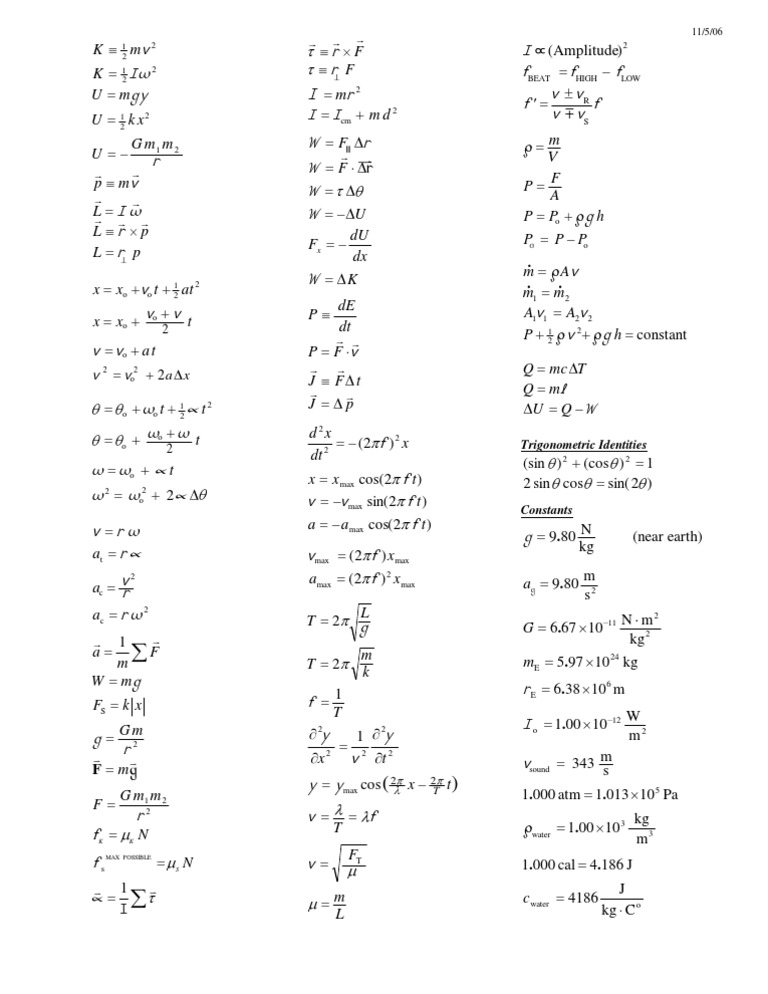 11/5/06
K ≡ ½ mv²
K = ½ I ω²
U = mgy
U = ½ k x²
U = − G m₁ m₂ / r
p⃗ ≡ m v⃗
L⃗ = I ω⃗
L⃗ ≡ r⃗ × p⃗
L = r⊥ p
x = xₒ + vₒ t + ½ at²
x = xₒ + (vₒ + v)/2 t
v = vₒ + at
v² = vₒ² + 2aΔx
θ = θₒ + ωₒ t + ½ ∝ t²
θ = θₒ + (ωₒ + ω)/2 t
ω = ωₒ + ∝ t
ω² = ωₒ² + 2 ∝ Δθ
v = r ω
a_t = r ∝
a_c = v²/r
a_c = r ω²
a⃗ = 1/m ∑ F⃗
W = mg
F_S = k|x|
g = Gm/r²
F⃗ = mg⃗
F = G m₁ m₂ / r²
f_K = μ_K N
f_s^MAX POSSIBLE = μ_s N
∝⃗ = 1/I ∑ τ⃗
τ⃗ ≡ r⃗ × F⃗
τ ≡ r⊥ F
I = mr²
I = I_cm + m d²
W = F∥ Δr
W = F⃗ · Δr⃗
W = τ Δθ
W = −ΔU
Fₓ = − dU/dx
W = ΔK
P ≡ dE/dt
P = F⃗ · v⃗
J⃗ ≡ F⃗ Δt
J⃗ = Δp⃗
d²x/dt² = −(2πf)² x
x = x_max cos(2π f t)
v = −v_max sin(2π f t)
a = −a_max cos(2π f t)
v_max = (2πf) x_max
a_max = (2πf)² x_max
T = 2π √(L/g)
T = 2π √(m/k)
f = 1/T
∂²y/∂x² = 1/v² ∂²y/∂t²
y = y_max cos(2π/λ x − 2π/T t)
v = λ/T = λf
v = √(F_T/μ)
μ = m/L
I ∝ (Amplitude)²
f_BEAT = f_HIGH − f_LOW
f′ = (v ± v_R)/(v ∓ v_S) f
ρ = m/V
P = F/A
P = Pₒ + ρ g h
P_G = P − Pₒ
ṁ = ρAv
ṁ₁ = ṁ₂
A₁v₁ = A₂v₂
P + ½ ρ v² + ρ g h = constant
Q = mcΔT
Q = mℓ
ΔU = Q − W
Trigonometric Identities
(sin θ)² + (cos θ)² = 1
2 sin θ cos θ = sin(2θ)
Constants
g = 9.80 N/kg (near earth)
a_g = 9.80 m/s²
G = 6.67 × 10⁻¹¹ N · m²/kg²
m_E = 5.97 × 10²⁴ kg
r_E = 6.38 × 10⁶ m
Iₒ = 1.00 × 10⁻¹² W/m²
v_sound = 343 m/s
1.000 atm = 1.013 × 10⁵ Pa
ρ_water = 1.00 × 10³ kg/m³
1.000 cal = 4.186 J
c_water = 4186 J/(kg · C°)